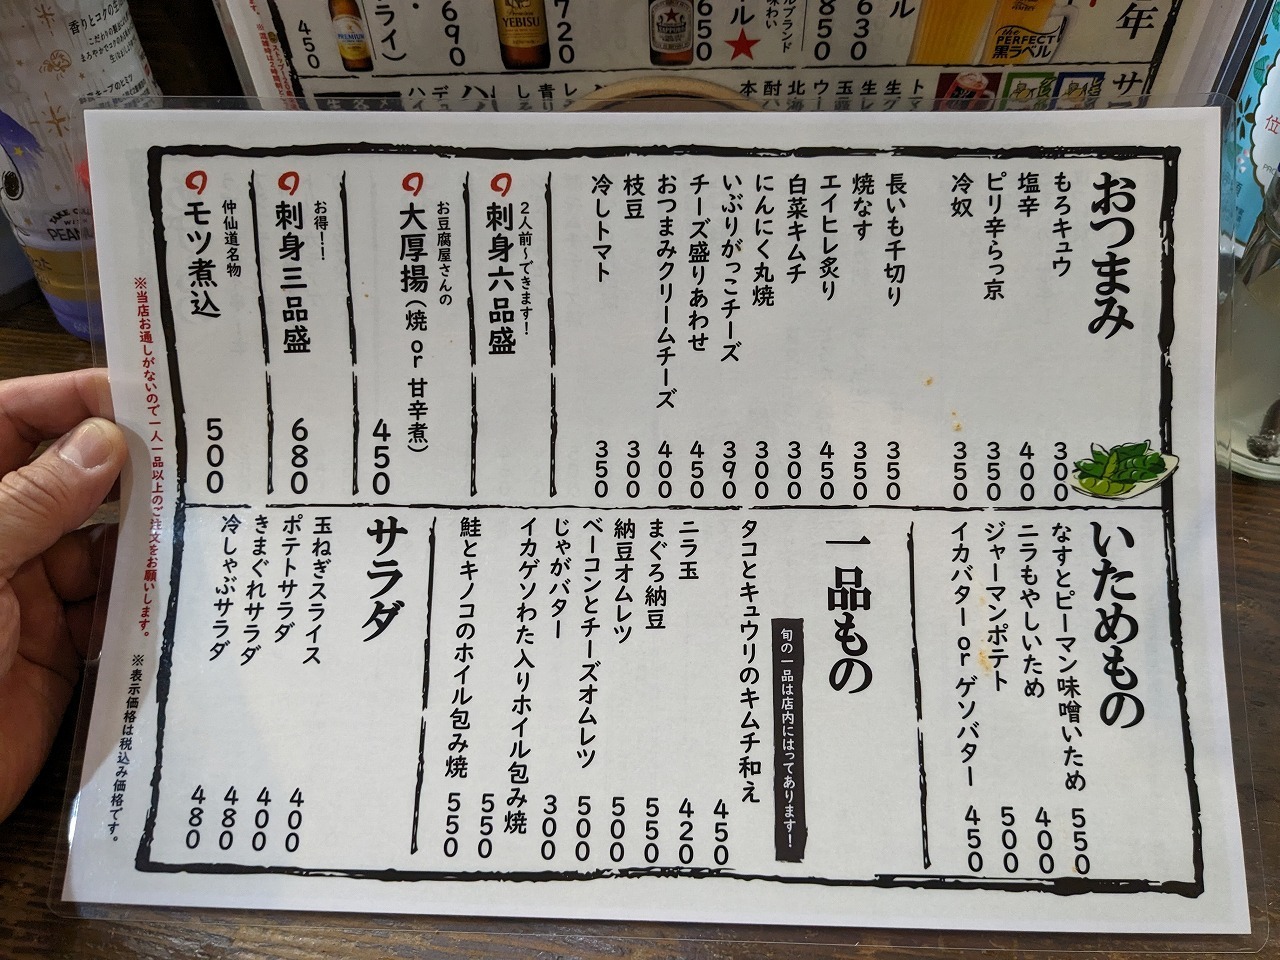 おつまみ
もろキュウ 300
塩辛 400
ピリ辛らっ京 350
冷奴 350
長いも千切り 350
焼なす 350
エイヒレ炙り 450
白菜キムチ 300
にんにく丸焼 300
いぶりがっこチーズ 390
チーズ盛りあわせ 450
おつまみクリームチーズ 400
枝豆 300
冷しトマト 350
2人前〜できます!
刺身六品盛
お豆腐屋さんの
大厚揚(焼 or 甘辛煮) 450
お得!!
刺身三品盛 680
仲仙道名物
モツ煮込 500
いためもの
なすとピーマン味噌いため 550
ニラもやしいため 400
ジャーマンポテト 500
イカバター or ゲソバター 450
一品もの
旬の一品は店内にはってあります!
タコとキュウリのキムチ和え 450
ニラ玉 420
まぐろ納豆 550
納豆オムレツ 500
ベーコンとチーズオムレツ 500
じゃがバター 300
イカゲソわた入りホイル包み焼 550
鮭とキノコのホイル包み焼 550
サラダ
玉ねぎスライス 400
ポテトサラダ 400
きまぐれサラダ 480
冷しゃぶサラダ 480
※当店お通しがないので一人一品以上のご注文をお願いします。
※表示価格は税込み価格です。
YEBISU
the PERFECT
黒ラベル
630
850
650
720
690
450